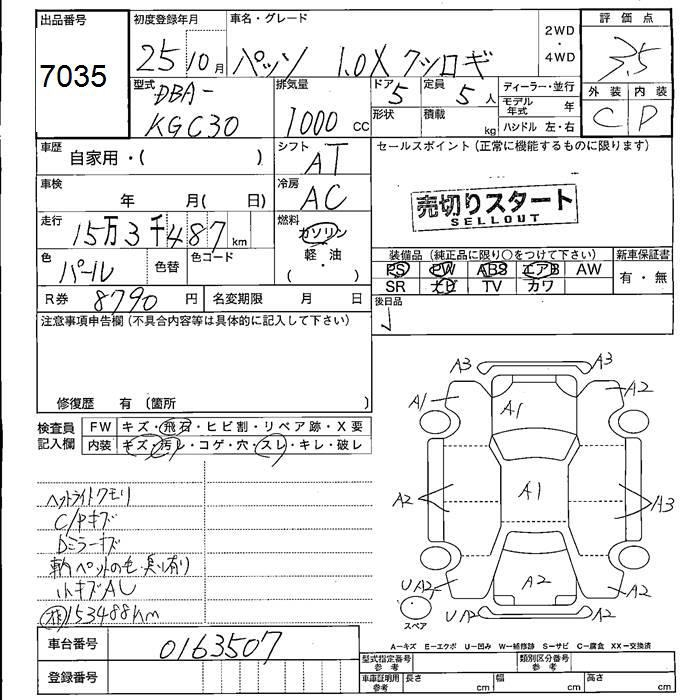 出品番号
7035
初度登録年月
25 10月
車名・グレード
パッソ 1.0X クツロギ
2WD
・
4WD
評価点
3.5
外装 内装
C D
型式
DBA-
KGC30
排気量
1000 cc
ドア 5
定員 5 人
形状
積載 kg
ディーラー・並行
モデル年式 年
ハンドル 左・右
車歴
自家用・( )
シフト
AT
セールスポイント(正常に機能するものに限ります)
売切りスタート
SELLOUT
車検
年 月( 日)
冷房
AC
走行
15万3千487 km
燃料
ガソリン
軽・油
( ・ )
色
パール
色替
色コード
装備品(純正品に限り○をつけて下さい)
PS PW ABS エアB AW
SR ナビ TV カワ
新車保証書
有・無
R券 8790 円
名変期限 月 日
後日品
注意事項申告欄(不具合内容等は具体的に記入して下さい)
修復歴 有(箇所 )
検査員
記入欄
FW キズ・飛石・ヒビ割・リペア跡・X要
内装 キズ・汚レ・コゲ・穴・スレ・キレ・破レ
ヘッドライトクモリ
C/Pキズ
Dミラーキズ
車内ペットの毛 臭い有り
小キズAU
153488km
A3 A3
A1 A2
A1
A2 A1 A3
A2
UA2 A2
UA2 A2
スペア
A-キズ E-エクボ U-凹み W-補修跡 S-サビ C-腐食 XX-交換済
車台番号
0163507
登録番号
型式指定番号
参考
類別区分番号
参考
車庫証明用
参考
長さ cm
幅 cm
高さ cm